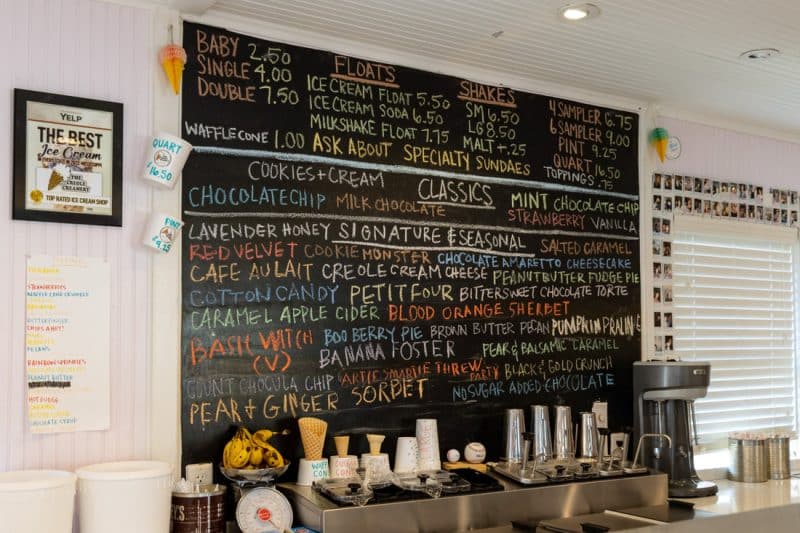 YELP
THE BEST
Ice Cream
THE CREOLE CREAMERY
TOP RATED ICE CREAM SHOP
QUART
16.50
PINT
9.25
BABY 2.50
SINGLE 4.00
DOUBLE 7.50
WAFFLE CONE 1.00
FLOATS
ICE CREAM FLOAT 5.50
ICE CREAM SODA 6.50
MILKSHAKE FLOAT 7.75
SHAKES
SM 6.50
LG 8.50
MALT +.25
4 SAMPLER 6.75
6 SAMPLER 9.00
PINT 9.25
QUART 16.50
TOPPINGS .75
ASK ABOUT SPECIALTY SUNDAES
COOKIES + CREAM CLASSICS MINT CHOCOLATE CHIP
CHOCOLATE CHIP MILK CHOCOLATE STRAWBERRY VANILLA
LAVENDER HONEY SIGNATURE & SEASONAL SALTED CARAMEL
RED VELVET COOKIE MONSTER CHOCOLATE AMARETTO CHEESECAKE
CAFE AU LAIT CREOLE CREAM CHEESE PEANUT BUTTER FUDGE PIE
COTTON CANDY PETIT FOUR BITTERSWEET CHOCOLATE TORTE
CARAMEL APPLE CIDER BLOOD ORANGE SHERBET
BASIC WITCH (V) BOO BERRY PIE BROWN BUTTER PECAN PUMPKIN PRALINE
BANANA FOSTER PEAR & BALSAMIC CARAMEL
COUNT CHOCULA CHIP THREW PARTY BLACK & GOLD CRUNCH
PEAR & GINGER SORBET NO SUGAR ADDED CHOCOLATE
STRAWBERRIES
BUTTERFINGER
PECANS
RAINBOW SPRINKLES
PEANUT BUTTER
HOT FUDGE
CARAMEL
CHOCOLATE SYRUP
WAFFLE CONE
SUGAR CONE
CAKE CONE